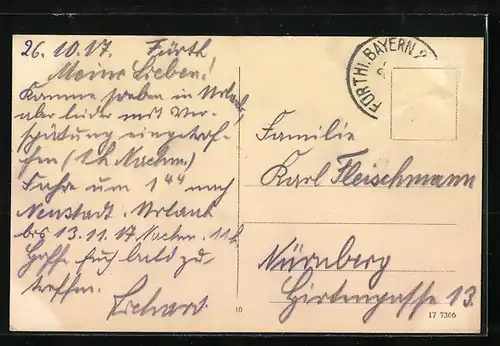 26. 10. 17. Fürth
Meine Lieben!
Komme soeben in Urlaub,
aber leider mit Ver-
spätung eingetrof-
fen (1 h Nachm.)
Fahre um 1⁴⁴ nach
Neustadt. Urlaub
bis 13. 11. 17 Nachm. 11 h.
Hoffe Euch bald zu
treffen.
Richard.
FÜRTH I. BAYERN 2
Familie
Karl Fleischmann
Nürnberg
Hirtengasse 13.
10
17 7366